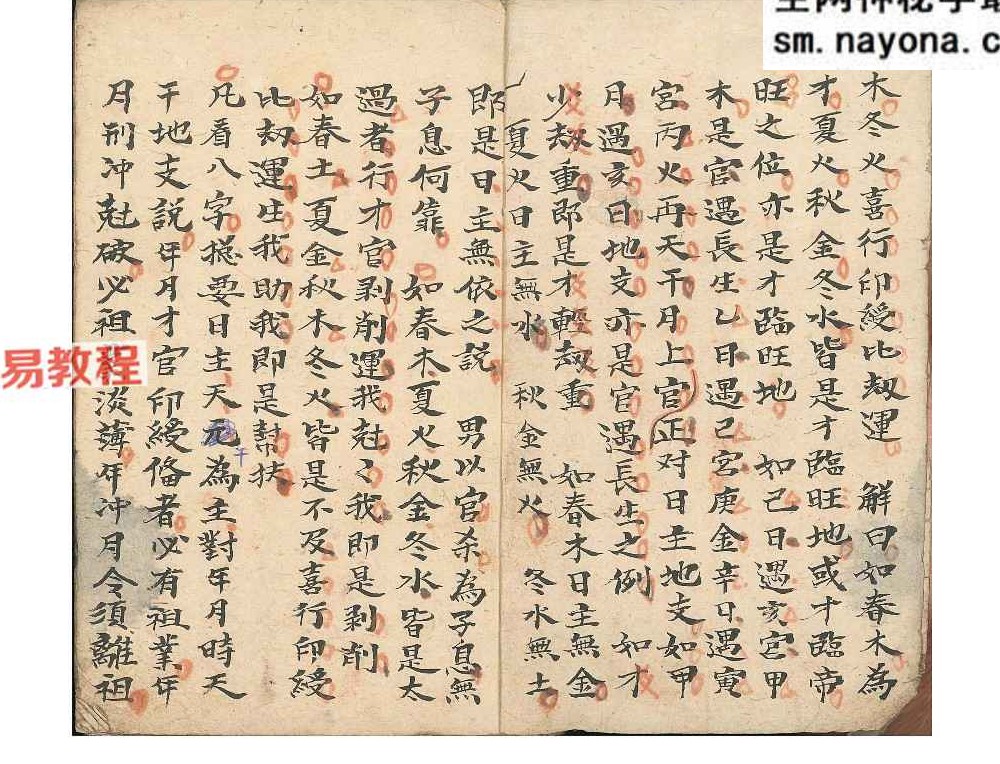 sm.nayona.c
易教程
木冬火喜行印綬比刼運 解曰如春木為
才夏火秋金冬水皆是才臨旺地或才臨帝
旺之位亦是才臨旺地 如己日遇亥宮甲
木是官遇長生乙日遇己宮庚金辛日遇寅
宮丙火再天干月上官正对日主地支如甲
月遇亥日地支亦是官遇長生之例 如才
少刼重即是才輕刼重 如春木日主無金
夏火日主無水 秋金無火 冬水無土
即是日主無依之説 男以官杀為子息無
子息何靠 如春木夏火秋金冬水皆是太
過者行才官剥削運我尅〻我即是剥削
如春土夏金秋木冬火皆是不及喜行印綬
比刼運生我助我即是幇扶
凡看八字総要日主天元為主對年月時天
干
干地支説年月才官印綬俻者必有祖業年
月刑冲尅破必祖淡薄年冲月令須離祖